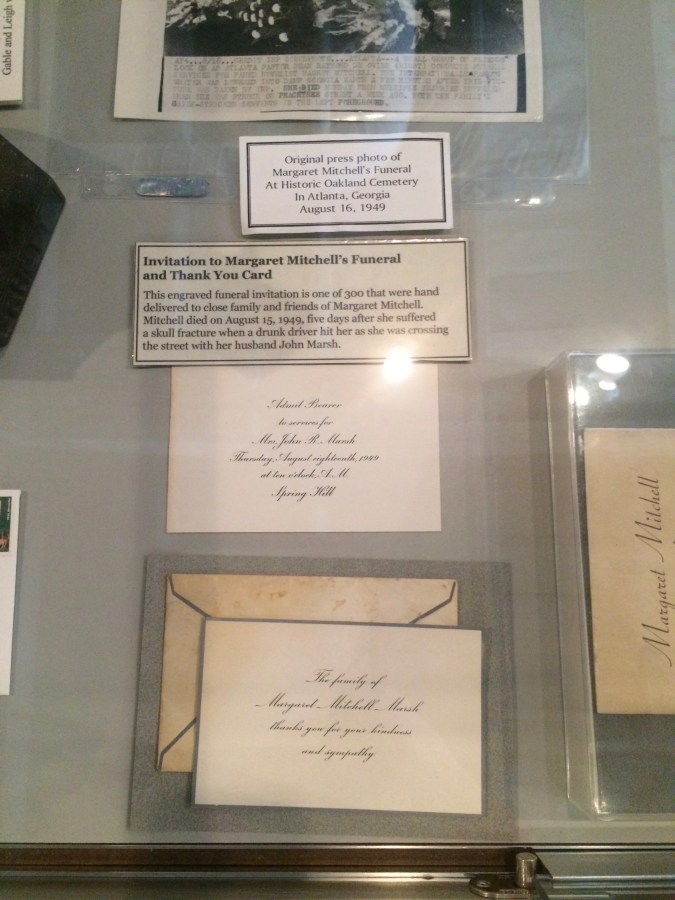 Gable and Leigh
Original press photo of
Margaret Mitchell's Funeral
At Historic Oakland Cemetery
In Atlanta, Georgia
August 16, 1949
Invitation to Margaret Mitchell's Funeral
and Thank You Card
This engraved funeral invitation is one of 300 that were hand
delivered to close family and friends of Margaret Mitchell.
Mitchell died on August 15, 1949, five days after she suffered
a skull fracture when a drunk driver hit her as she was crossing
the street with her husband John Marsh.
Admit Bearer
to services for
Mrs. John R. Marsh
Thursday, August eighteenth, 1949
at ten o'clock, A.M.
Spring Hill
Margaret Mitchell
The family of
Margaret Mitchell Marsh
thanks you for your kindness
and sympathy